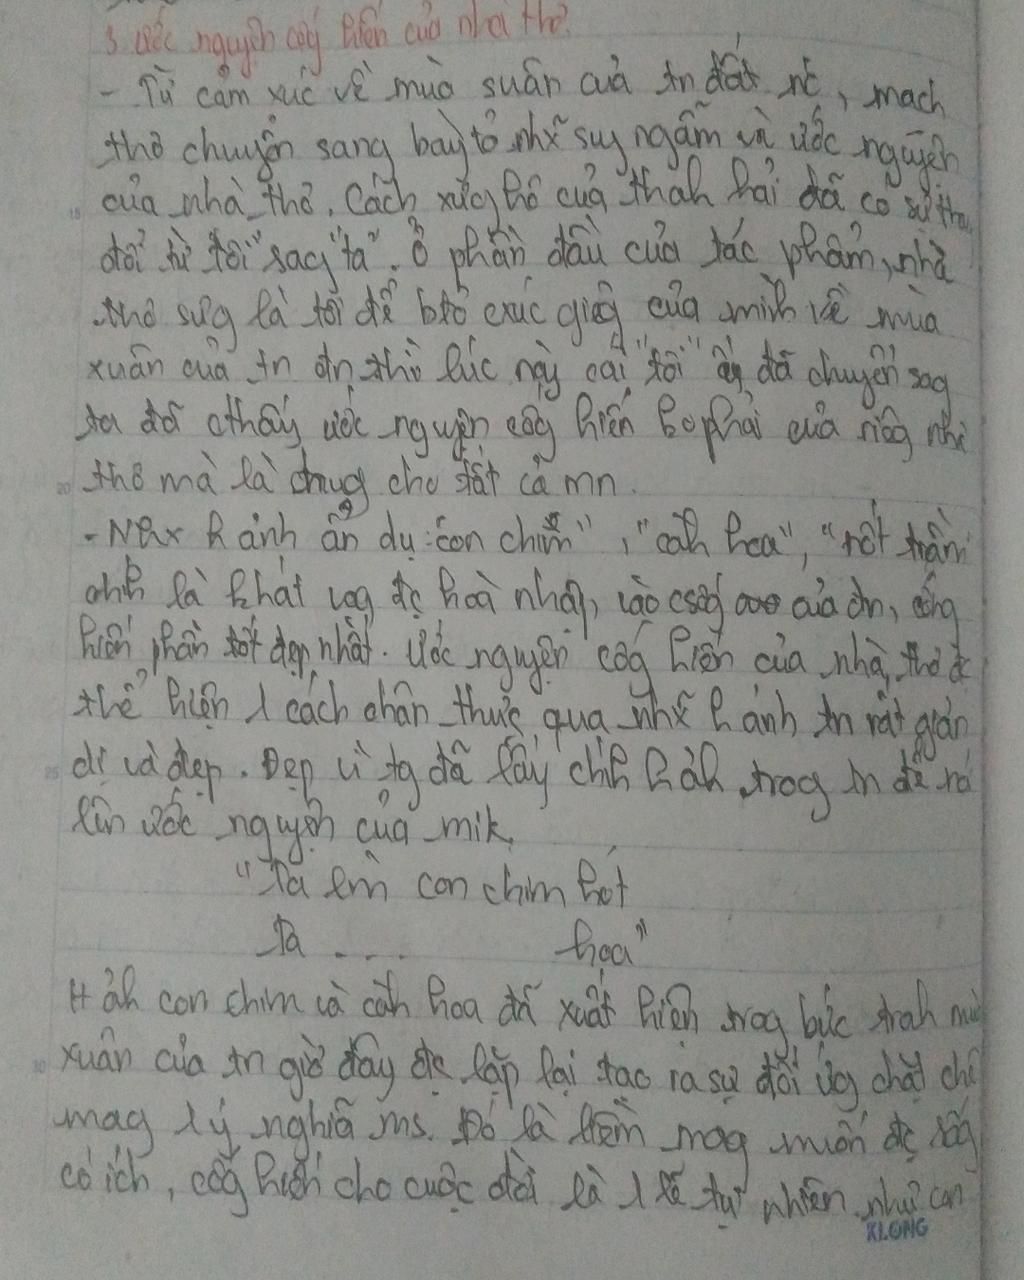 3 ước nguyện cốg hiến của nhà thơ.
- Từ cảm xúc về mùa suân của tn đất nc, mạch
thơ chuyển sang bày tỏ nhx suy ngẫm và ước nguyện
của nhà thơ. Cách xưg hô của thah hải đã có sự thay
đổi từ "tôi" sag "ta". Ở phần đầu của tác phẩm, nhà
thơ sưg là tôi để btỏ cxúc riêg của mình về mùa
xuân của tn đn thì lúc này cái "tôi" ấy đã chuyển sag
ta để cthấy ước nguyện cốg hiến ko phải của riêg nhà
thơ mà là chug cho tất cả mn.
- Nhx h ảnh ẩn dụ: "con chim", "cành hoa", "nốt trầm"
chíh là khát vọg đc hoà nhập, vào csốg của đn, cống
hiến phần tốt đẹp nhất. Ước nguyện cốg hiến của nhà thơ đc
thể hiện 1 cách chân thực qua nhx h ảnh tn rất giản
dị và đẹp. Đẹp vì tg đã lấy chíh h ảh trog tn để nói
lên ước nguyện của mik.
"Ta làm con chim hót
Ta .... hoa"
H ảh con chim và càh hoa đã xuất hiện trog bức trah mùa
xuân của tn giờ đây đc lặp lại tạo ra sự đối ứg chặt chẽ
mag 1 ý nghĩa ms. Đó là niềm mog muốn đc sốg
có ích, cốg hiến cho cuộc đời là 1 lẽ tự nhiên như con
15
20
25
30
KLONG